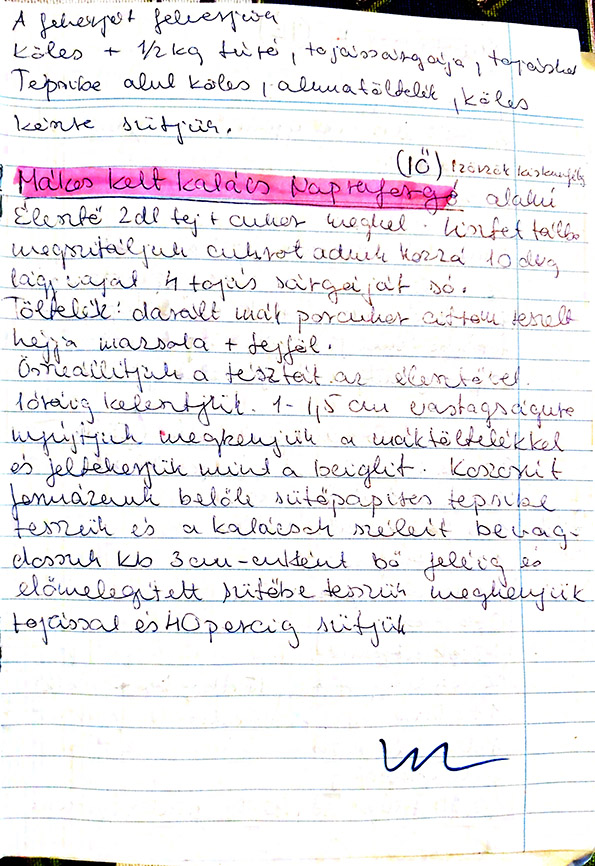 A fehérjét felverjük
Köles + 1/2 kg túró, tojássárgája, tojáshab
Tepsibe alul köles, almatöltelék, köles
készre sütjük.
(IÖ)
Mákos kelt kalács Napraforgó alakú
Élesztő 2dl tej + cukor megkel. Lisztet tálba
megszitáljuk cukrot adunk hozzá 10 dkg
lágy vajat 4 tojás sárgáját só.
Töltelék: darált mák porcukor citrom reszelt
héjja mazsola + tejföl.
Összeállítjuk a tésztát az élesztővel
1 óráig kelesztjük. 1-1,5 cm vastagságura
nyújtjuk megkenjük a máktöltelékkel
és feltekerjük mint a beiglit. Koszorút
formázunk belőle sütőpapíros tepsibe
tesszük és a kalácsok széleit bevag-
dossuk kb 3 cm-enként bő feléig és
előmelegített sütőbe tesszük megkenjük
tojással és 40 percig sütjük